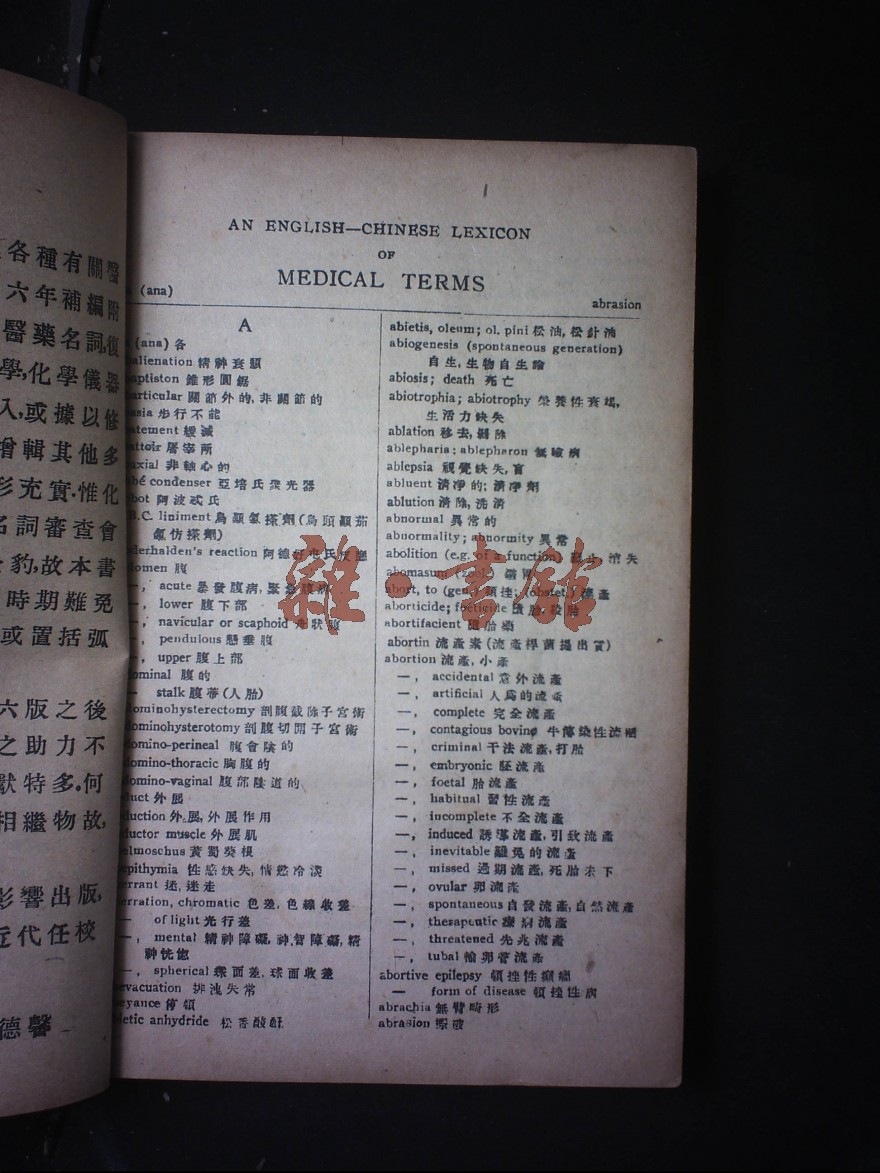 各種有關醫
六年補編附
醫藥名詞,復
學,化學儀器
入,或據以修
增輯其他多
充實.惟化
名詞審查會
豹,故本書
時期難免
或置括弧
六版之後
之助力不
獻特多.何
相繼物故,
影響出版,
近代任校
德馨
AN ENGLISH—CHINESE LEXICON
OF
MEDICAL TERMS
(ana)
abrasion
A
(ana) 各
alienation 精神衰頹
aptiston 錐形圓鋸
articular 關節外的,非關節的
asia 步行不能
atement 緩減
attoir 屠宰所
axial 非軸心的
bé condenser 亞培氏聚光器
bot 阿波忒氏
B.C. liniment 烏顚氯搽劑(烏頭顚茄
氯仿搽劑)
derhalden's reaction 阿德
domen 腹
—, acute 暴發腹病,緊急腹病
—, lower 腹下部
—, navicular or scaphoid 舟狀腹
—, pendulous 懸垂腹
—, upper 腹上部
dominal 腹的
— stalk 腹蒂(人胎)
dominohysterectomy 剖腹截除子宮術
dominohysterotomy 剖腹切開子宮術
domino-perineal 腹會陰的
domino-thoracic 胸腹的
domino-vaginal 腹部陰道的
duct 外展
duction 外展,外展作用
ductor muscle 外展肌
elmoschus 黃蜀葵根
epithymia 性慾缺失,情慾冷淡
errant 迷,迷走
erration, chromatic 色差,色線收差
— of light 光行差
—, mental 精神障礙,神智障礙,精
神恍惚
—, spherical 球面差,球面收差
evacuation 排洩失常
eyance 停頓
ietic anhydride 松香酸酐
abietis, oleum; ol. pini 松油,松針油
abiogenesis (spontaneous generation)
自生,生物自生論
abiosis; death 死亡
abiotrophia; abiotrophy 榮養性衰竭,
生活力缺失
ablation 移去,割除
ablepharia; ablepharon 無瞼病
ablepsia 視覺缺失,盲
abluent 清淨的;清淨劑
ablution 清除,洗清
abnormal 異常的
abnormality; abnormity 異常
abolition (e.g. of a function) 消失
abomasum (zool.) 皺胃
abort, to (gen.) 頓挫; (obstet.) 流產
aborticide; foeticide 墮胎,殺胎
abortifacient 墮胎藥
abortin 流產素(流產桿菌提出質)
abortion 流產,小產
—, accidental 意外流產
—, artificial 人爲的流產
—, complete 完全流產
—, contagious bovine 牛傳染性流產
—, criminal 干法流產,打胎
—, embryonic 胚流產
—, foetal 胎流產
—, habitual 習性流產
—, incomplete 不全流產
—, induced 誘導流產,引致流產
—, inevitable 難免的流產
—, missed 過期流產,死胎未下
—, ovular 卵流產
—, spontaneous 自發流產,自然流產
—, therapeutic 療病流產
—, threatened 先兆流產
—, tubal 輸卵管流產
abortive epilepsy 頓挫性癲癇
— form of disease 頓挫性病
abrachia 無臂畸形
abrasion 擦破
雜·書館